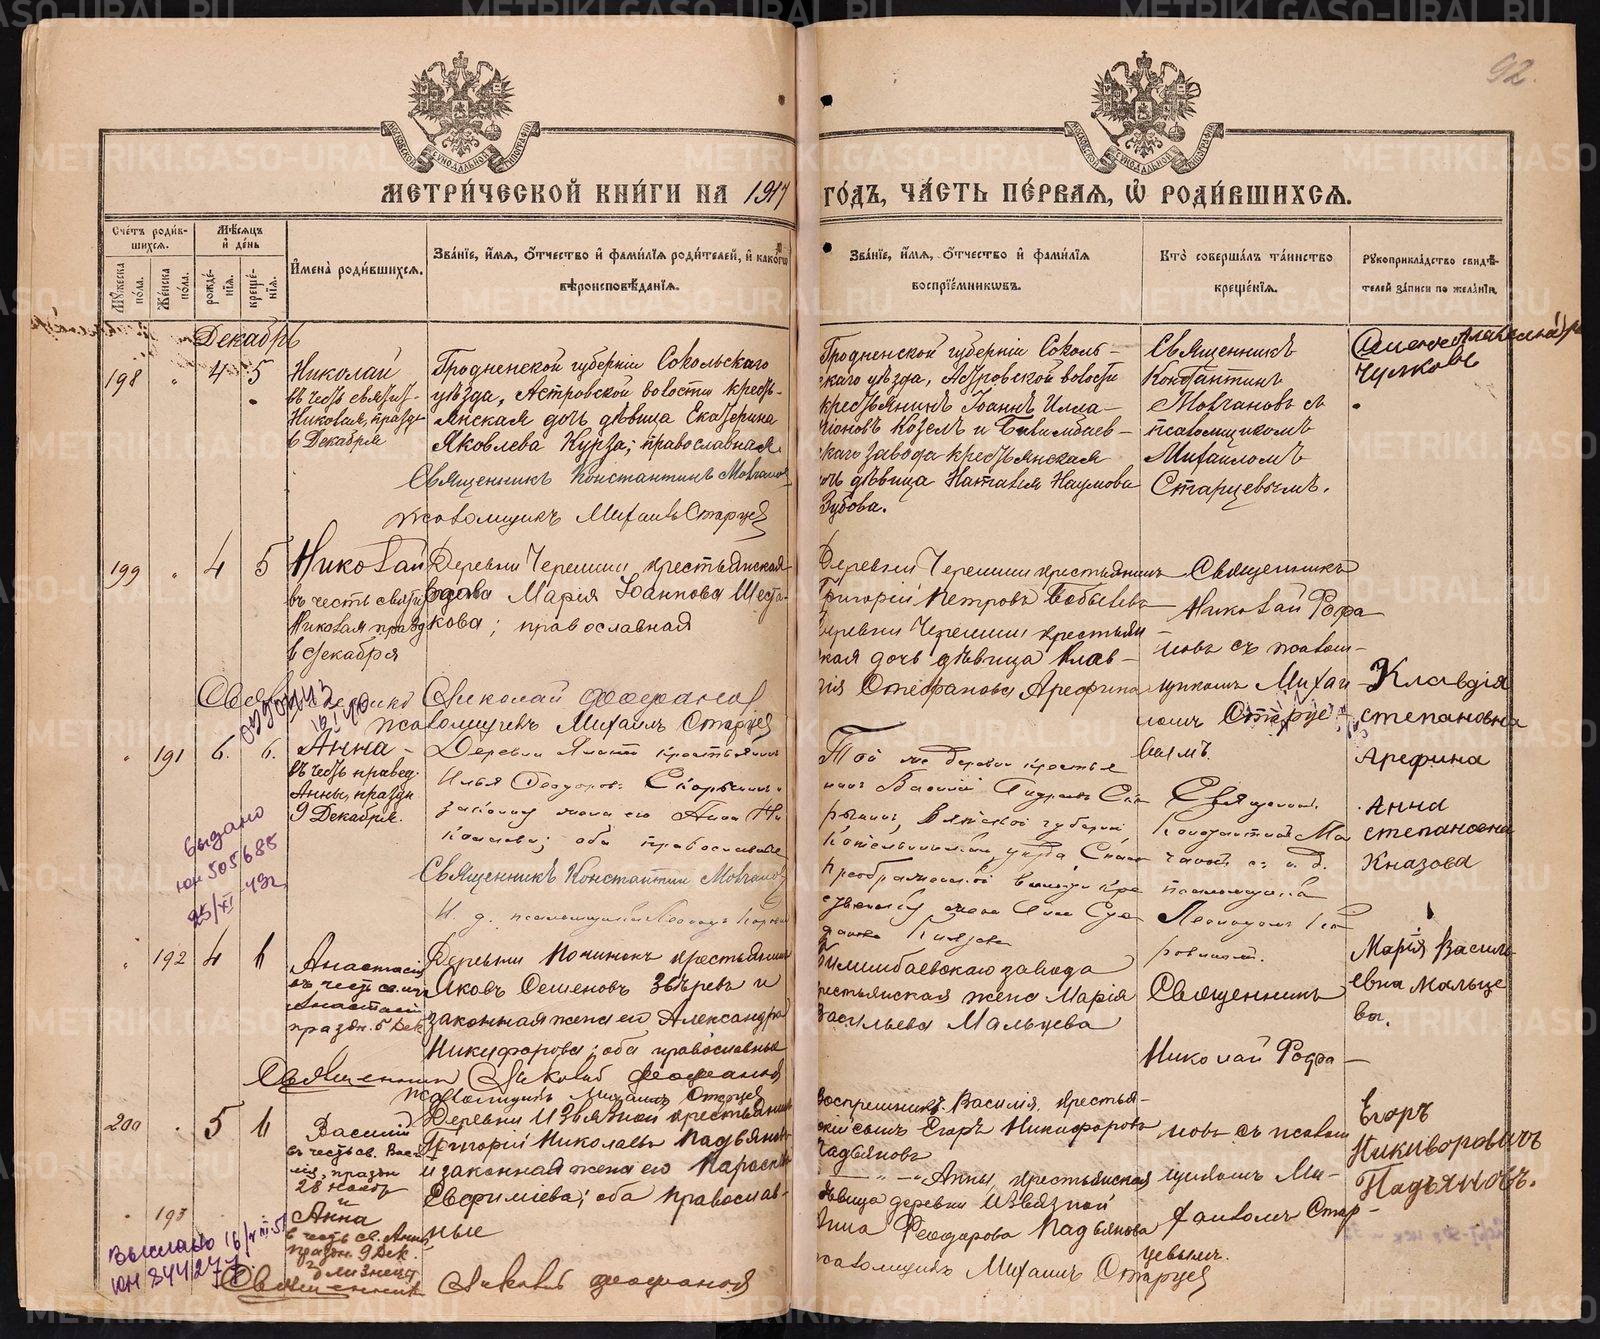 METRIKI.GASO-URAL.RU
92.
МЕТРИ́ЧЕСКОЙ КНИ́ГИ НА 1917 ГО́ДЪ, ЧА́СТЬ ПЕ́РВАЯ, Ѡ РОДИ́ВШИХСЯ.
Сче́тъ роди́вшихся.
Му́жеска по́ла.
Же́нска по́ла.
Мѣ́сяцъ и де́нь
рожде́нія.
креще́нія.
Имена́ роди́вшихся.
Зва́ніе, и́мя, о́тчество и фами́лія роди́телей, и како́гѡ
вѣроисповѣ́данія.
Зва́ніе, и́мя, о́тчество и фами́лія
воспріе́мникѡвъ.
Кто́ соверша́лъ та́инство
креще́нія.
Рукоприкла́дство свидѣ́-
телей за́писи по жела́нію.
Декабрь
198 " 4 5
Николай
въ честь святит.
Николая, празд.
6 Декабря
Гродненской губерніи Сокольскаго
уѣзда, Астровской волости кресть-
янская дочь дѣвица Екатерина
Яковлева Курза; православная
Священникъ Константинъ Молчанов
псаломщикъ Михаилъ Старцев
Гродненской губерніи Соколь-
скаго уѣзда, Астровской волости
крестьянинъ Іоаннъ Илла-
ріоновъ Козелъ и Билимбаев-
скаго завода крестьянская
дочь дѣвица Наталія Наумова
Зубова.
Священникъ
Константинъ
Молчановъ съ
псаломщикомъ
Михаиломъ
Старцевымъ.
Чулковъ
199 " 4 5
Николай
въ честь святи
Николая празд
6 декабря
Деревни Черемши, крестьянская
вдова Марія Іоаннова Шеста-
кова; православная
Священникъ Николай Феофанов
псаломщикъ Михаилъ Старцев
Деревни Черемши крестьянинъ
Григорій Петровъ Бобылевъ
деревни Черемши крестьян-
ская дочь дѣвица Клав-
дія Стефанова Арефина
Священникъ
Николай Феофа-
новъ съ псалом-
щикомъ Михаи-
ломъ Старце-
вымъ.
Клавдія
степановна
Арефина
" 191 6. 6.
Анна
въ честь правед.
Анны, праздн
9 Декабря.
Деревни крестьянинъ
Илья Ѳеодоровъ
законная жена его Анна
оба православные
Священникъ Константин Молчанов
И. д. псаломщика Леонидъ
Той же деревни крестья-
нинъ Василій
Вятской губерніи
Котельническаго уѣзда Спасо
Преображенской волости кре
стьянская жена Анна
Князева
Священник
Константин Мо
лчановъ с и. д.
псаломщика
Леонидом
Анна
степановна
Князева
Выдано
юн 505685
25/XI-49г
" 192 4 6
Анастасія
въ честь св. муч
Анастасіи
праздн. 5 Дек.
Деревни Починокъ крестьянинъ
Яковъ Семеновъ Звѣревъ и
законная жена его Александра
Никифорова; оба православные
Священник Николай Феофанов
псаломщикъ Михаилъ Старцев
Билимбаевскаго завода
крестьянская жена Марія
Васильева Мальцева
Священникъ
Николай Феофа-
новъ съ псалом
щикомъ Ми-
хаиломъ Стар-
цевымъ.
Марія Василь
евна Мальце
ва.
200 " 5 6
Василій
въ честь св. Васи-
лія, праздн
28 Ноября
и
" 193
Анна
в честь св. Анны
праздн. 9 Дек.
близнецы
Деревни Извязной крестьянинъ
Григорій Николаевъ Падьяновъ
и законная жена его Параскева
Евфиміева; оба православ-
ные
Священник Николай Феофанов
псаломщикъ Михаилъ Старцев
Воспреемники: Василія, крестья-
нскій сынъ Егоръ Никифоровъ
Падьяновъ
— " — Анны, крестьянская
дѣвица деревни Извязной
Анна Феодорова Падьянова
Егоръ
Никиворовичъ
Падьяновъ.
Выслано 16/VIII 51
ЮН 844277